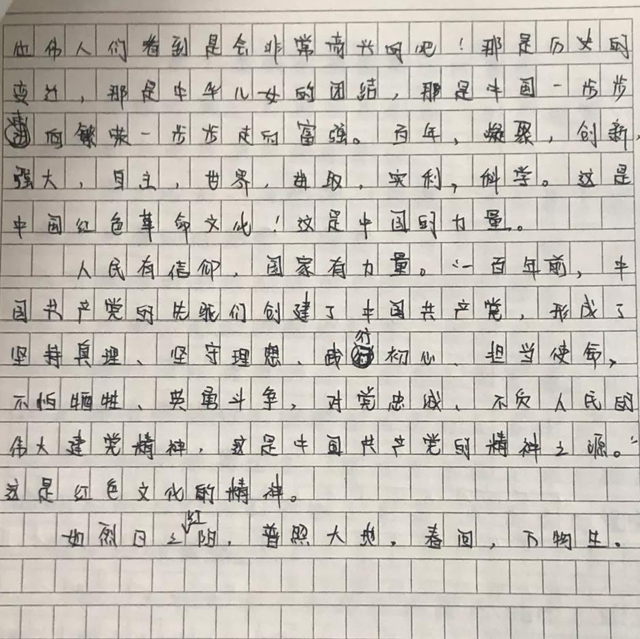 伟人们看到是会非常高兴的吧！那是历史的
变迁，那是中华儿女的团结，那是中国一步步
向繁荣一步步走向富强。百年，凝聚，创新，
强大，自主，世界，进取，实利，科学。这是
中国红色革命文化！这是中国的力量。
人民有信仰，国家有力量。“一百年前，中
国共产党的先驱们创建了中国共产党，形成了
坚持真理、坚守理想、践行初心、担当使命，
不怕牺牲、英勇斗争，对党忠诚、不负人民的
伟大建党精神，这是中国共产党的精神之源。”
这是红色文化的精神。
如烈日之红阳，普照大地，春回，万物生。